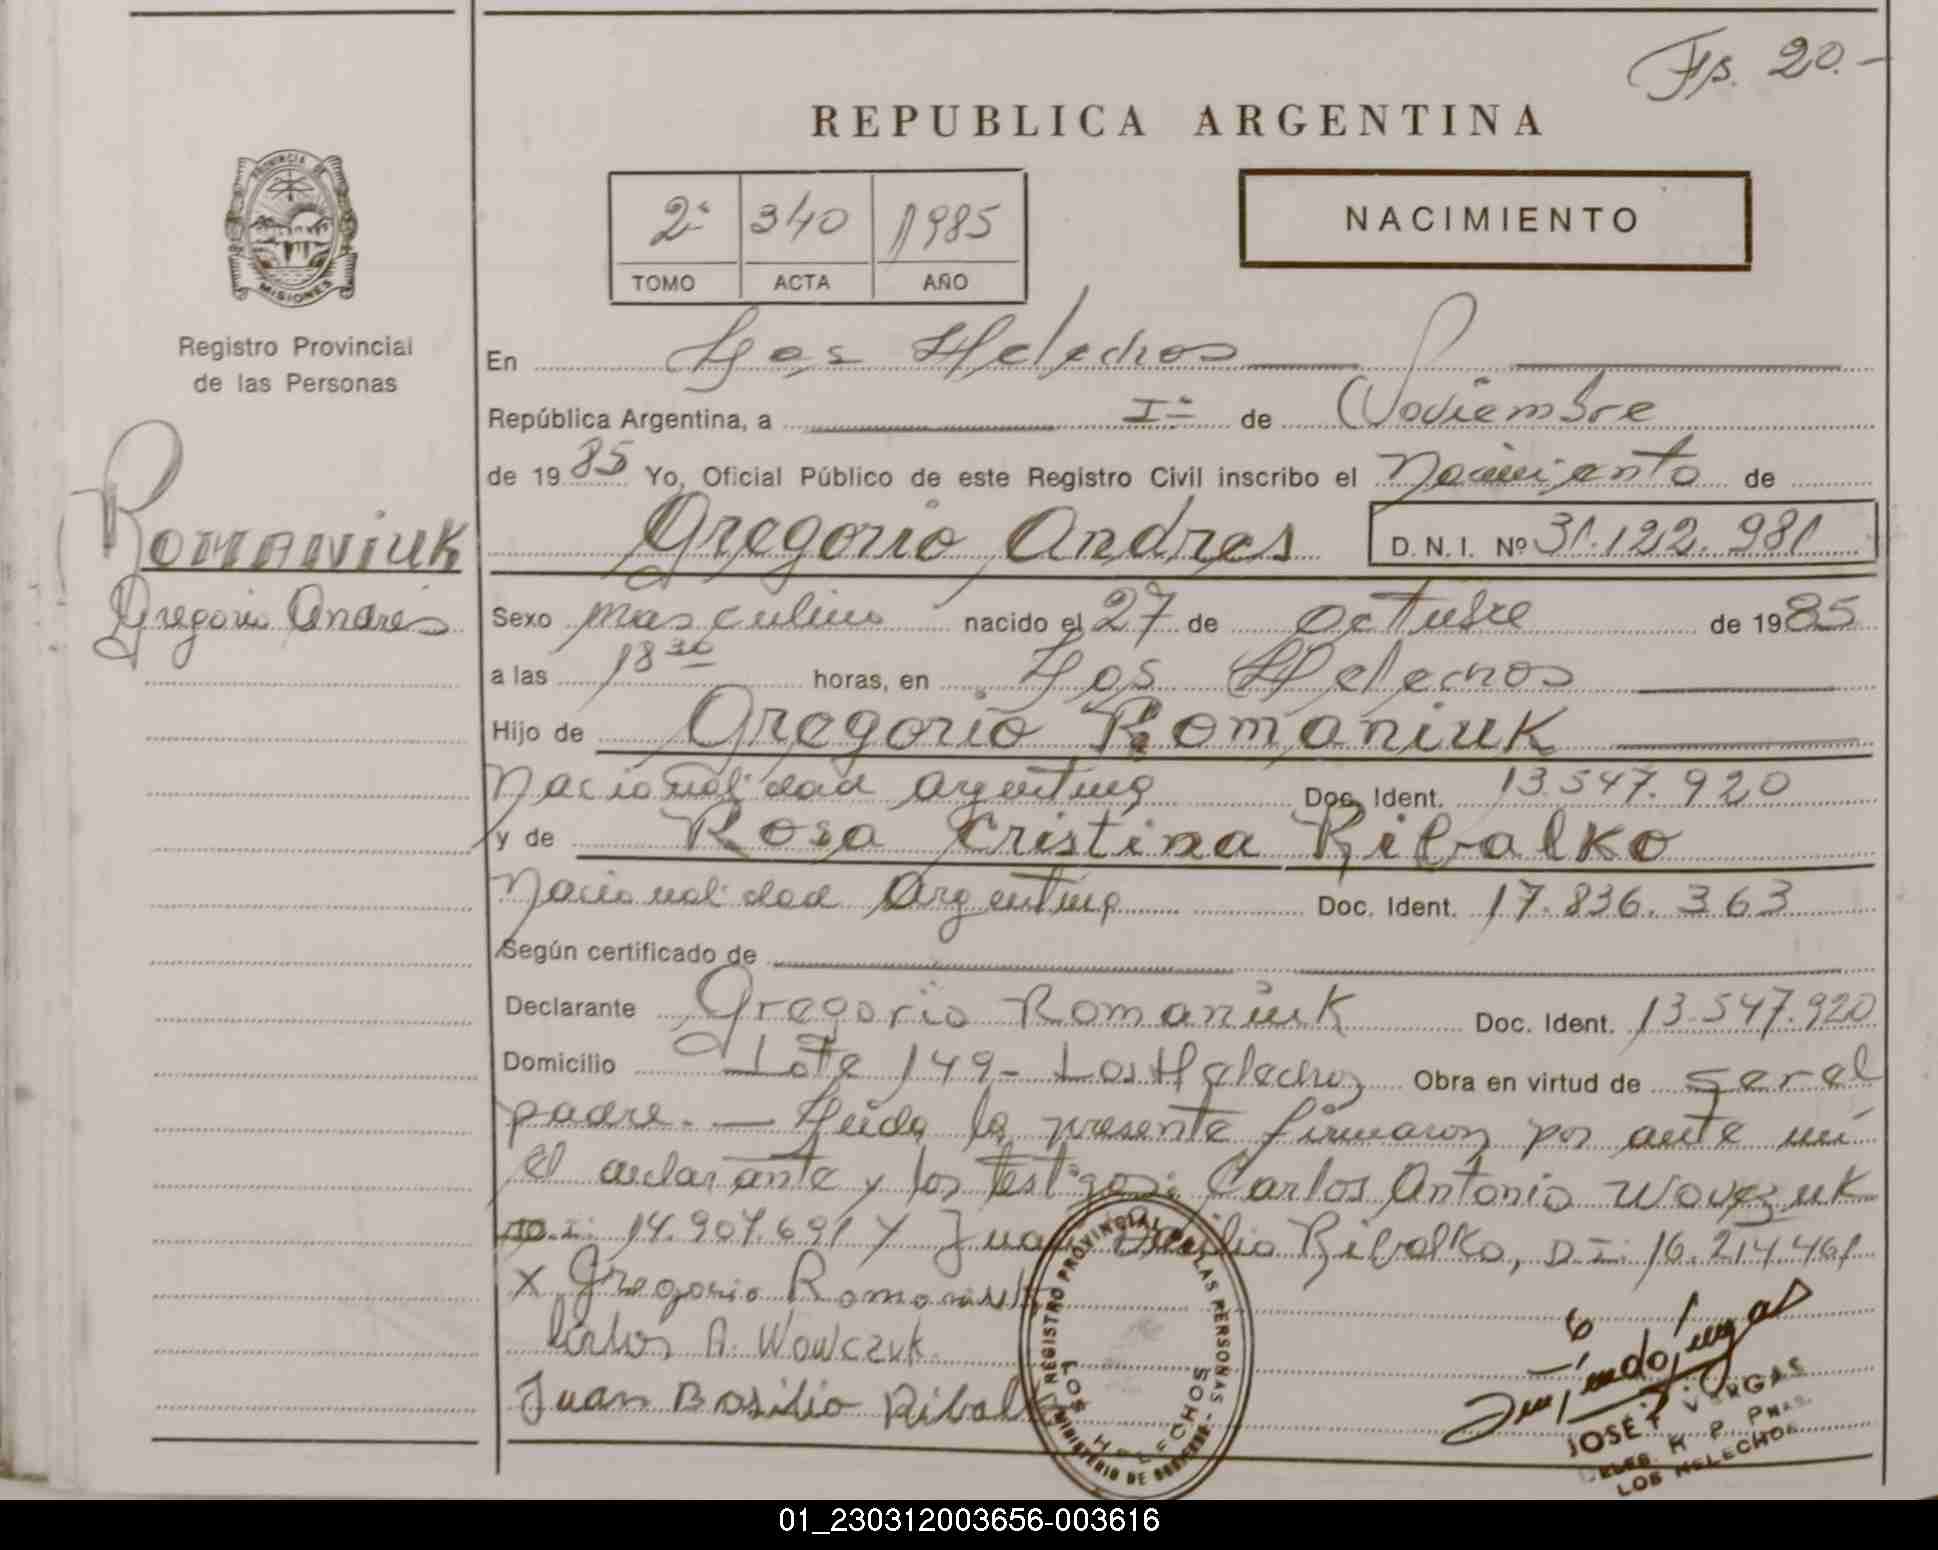 Fs. 20.-
REPUBLICA ARGENTINA
2ª 340 1985
TOMO ACTA AÑO
NACIMIENTO
PROVINCIA DE
MISIONES
Registro Provincial
de las Personas
ROMANIUK
Gregorio Andrés
En Los Helechos
República Argentina, a 1º de Noviembre
de 1985 Yo, Oficial Público de este Registro Civil inscribo el Nacimiento de
Gregorio Andres D.N.I. Nº 31.122.981
Sexo masculino nacido el 27 de octubre de 1985
a las 18 30 horas, en Los Helechos
Hijo de Gregorio Romaniuk
Nacionalidad argentina Doc. Ident. 13.547.920
y de Rosa Cristina Ribalko
Nacionalidad Argentina Doc. Ident. 17.836.363
Según certificado de
Declarante Gregorio Romaniuk Doc. Ident. 13.547.920
Domicilio Lote 149 - Los Helechos Obra en virtud de ser el
padre. — Leída la presente firmaron por ante mí
el declarante y los testigos: Carlos Antonio Wovczuk
D.I: 14.907.691 y Juan Basilio Ribalko, D.I: 16.214.461
x Gregorio Romaniuk
Carlos A. Wowczuk
Juan Basilio Ribalko
REGISTRO PROVINCIAL DE LAS PERSONAS
MINISTERIO DE GOBIERNO
LOS HELECHOS
JOSE F. VARGAS
DELEG. R. P. PNAS.
LOS HELECHOS
01_230312003656-003616